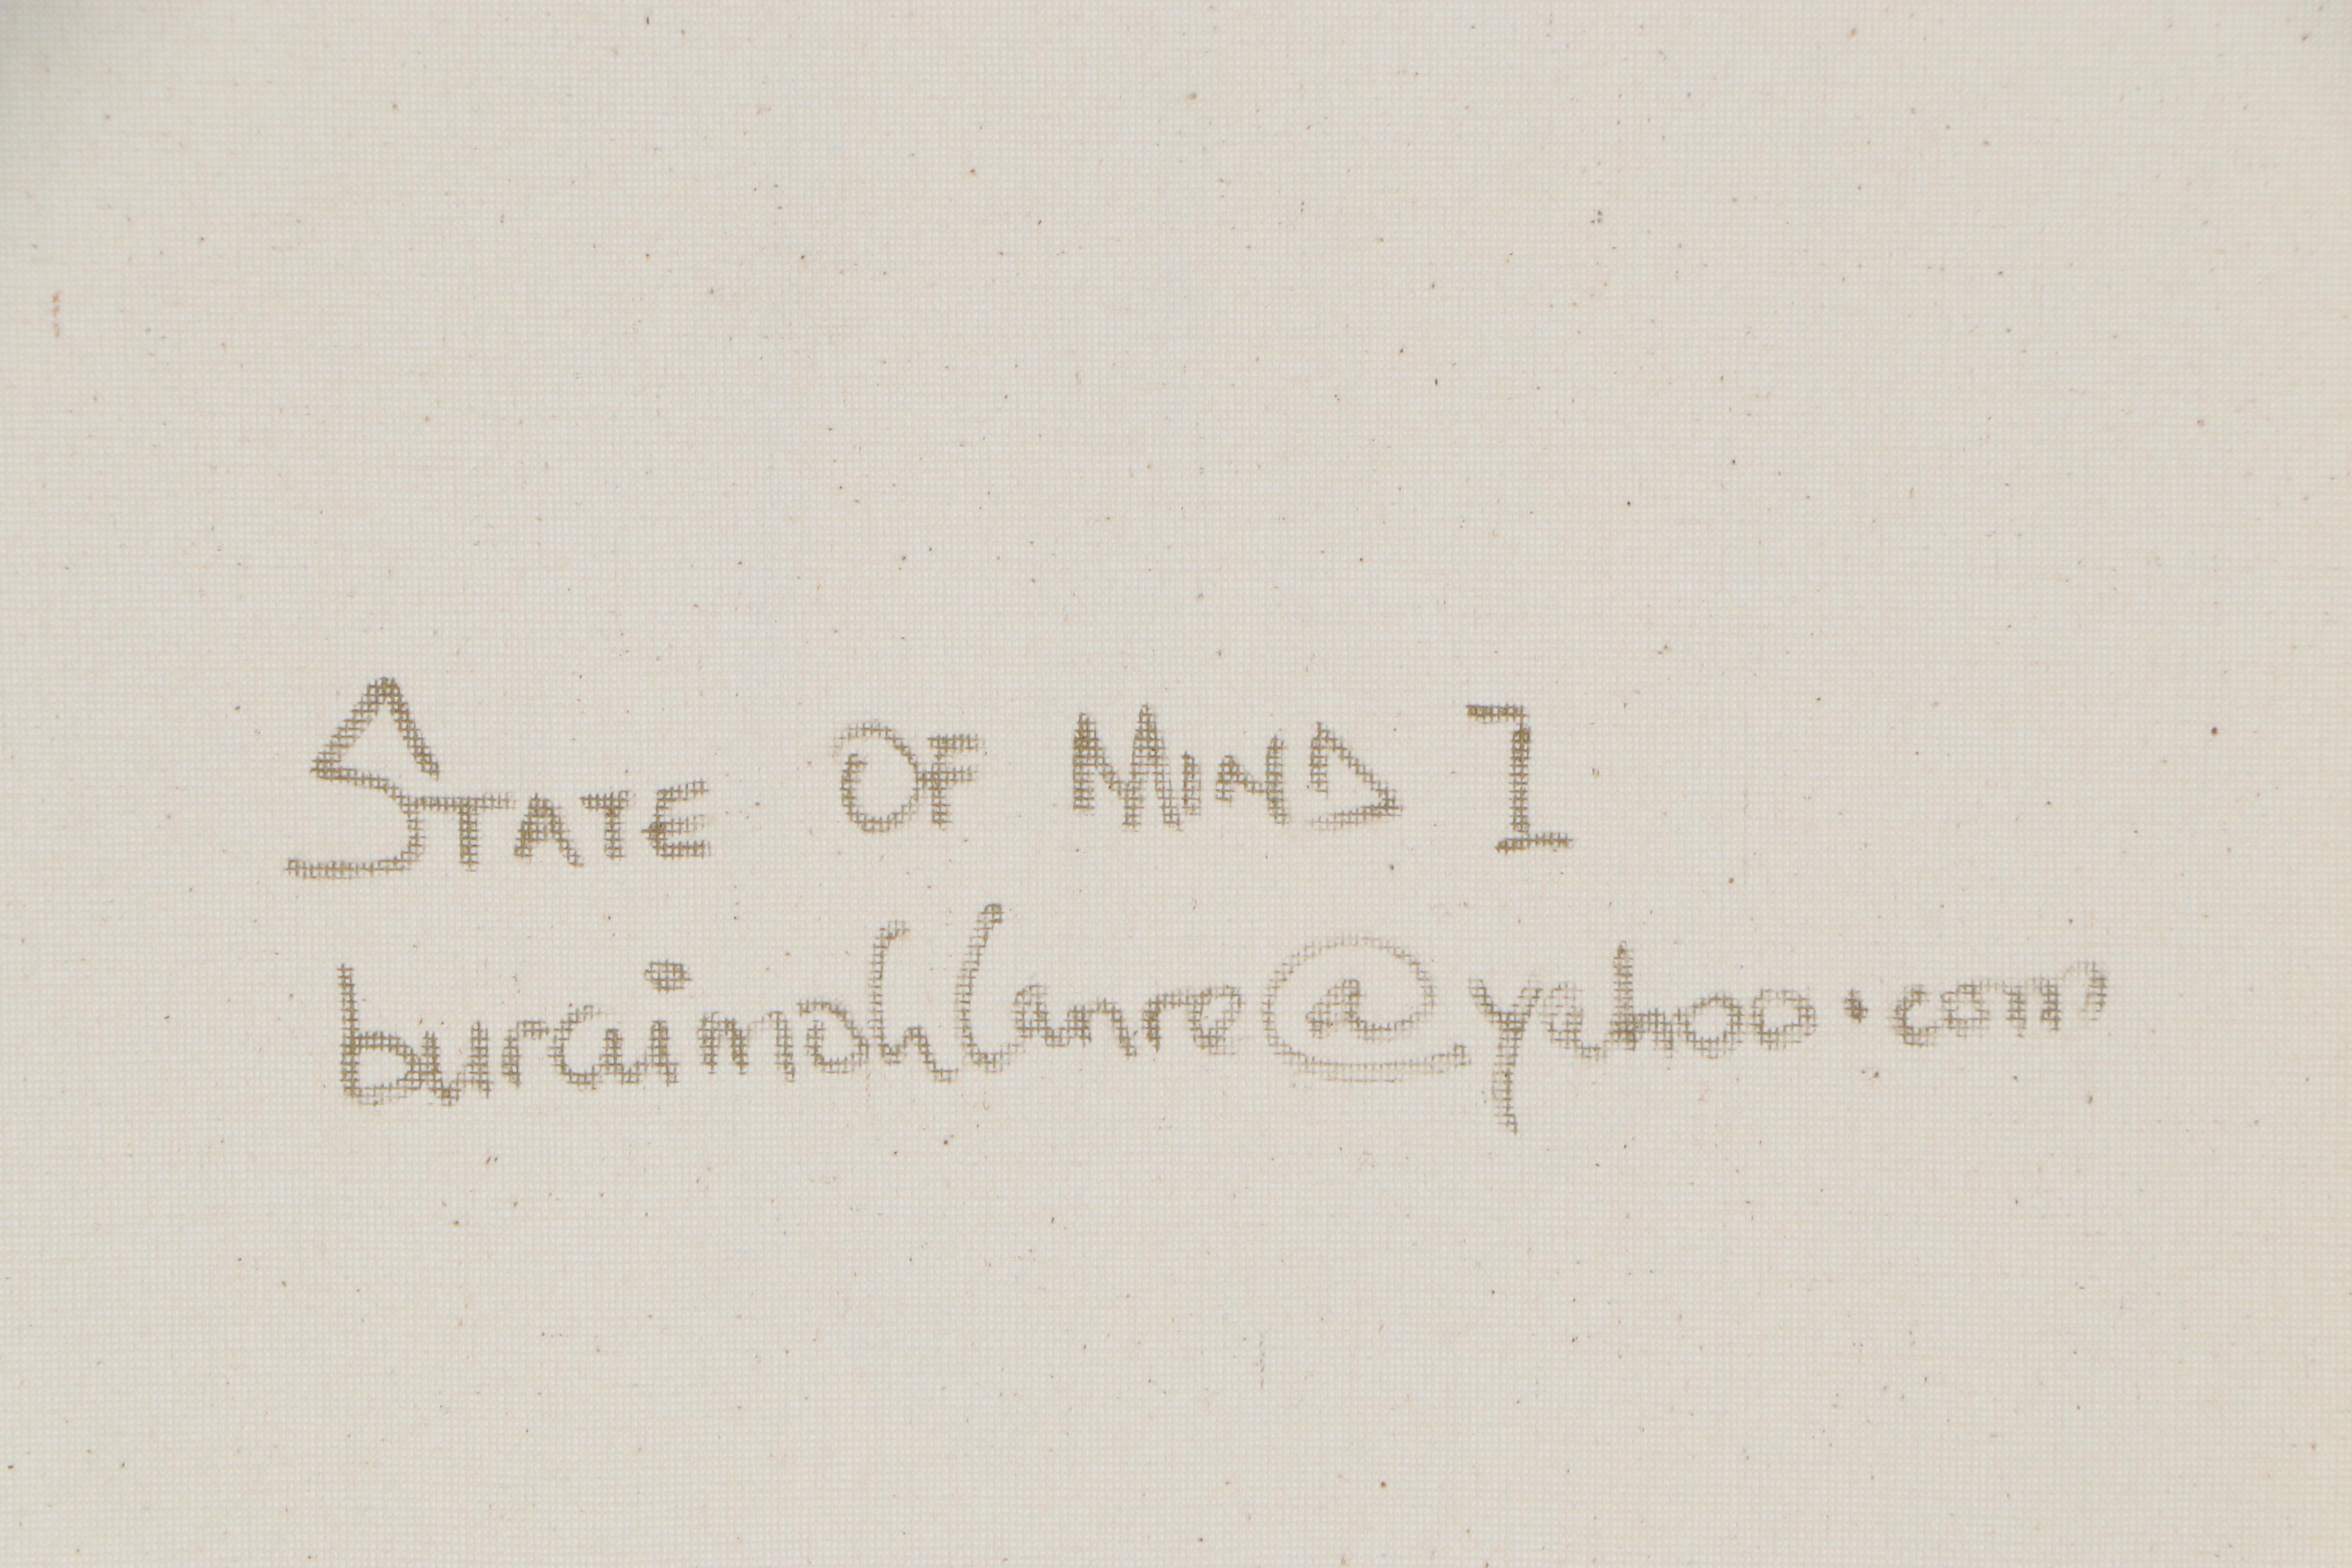 STATE OF MIND I
buraimohlanre@yahoo.com